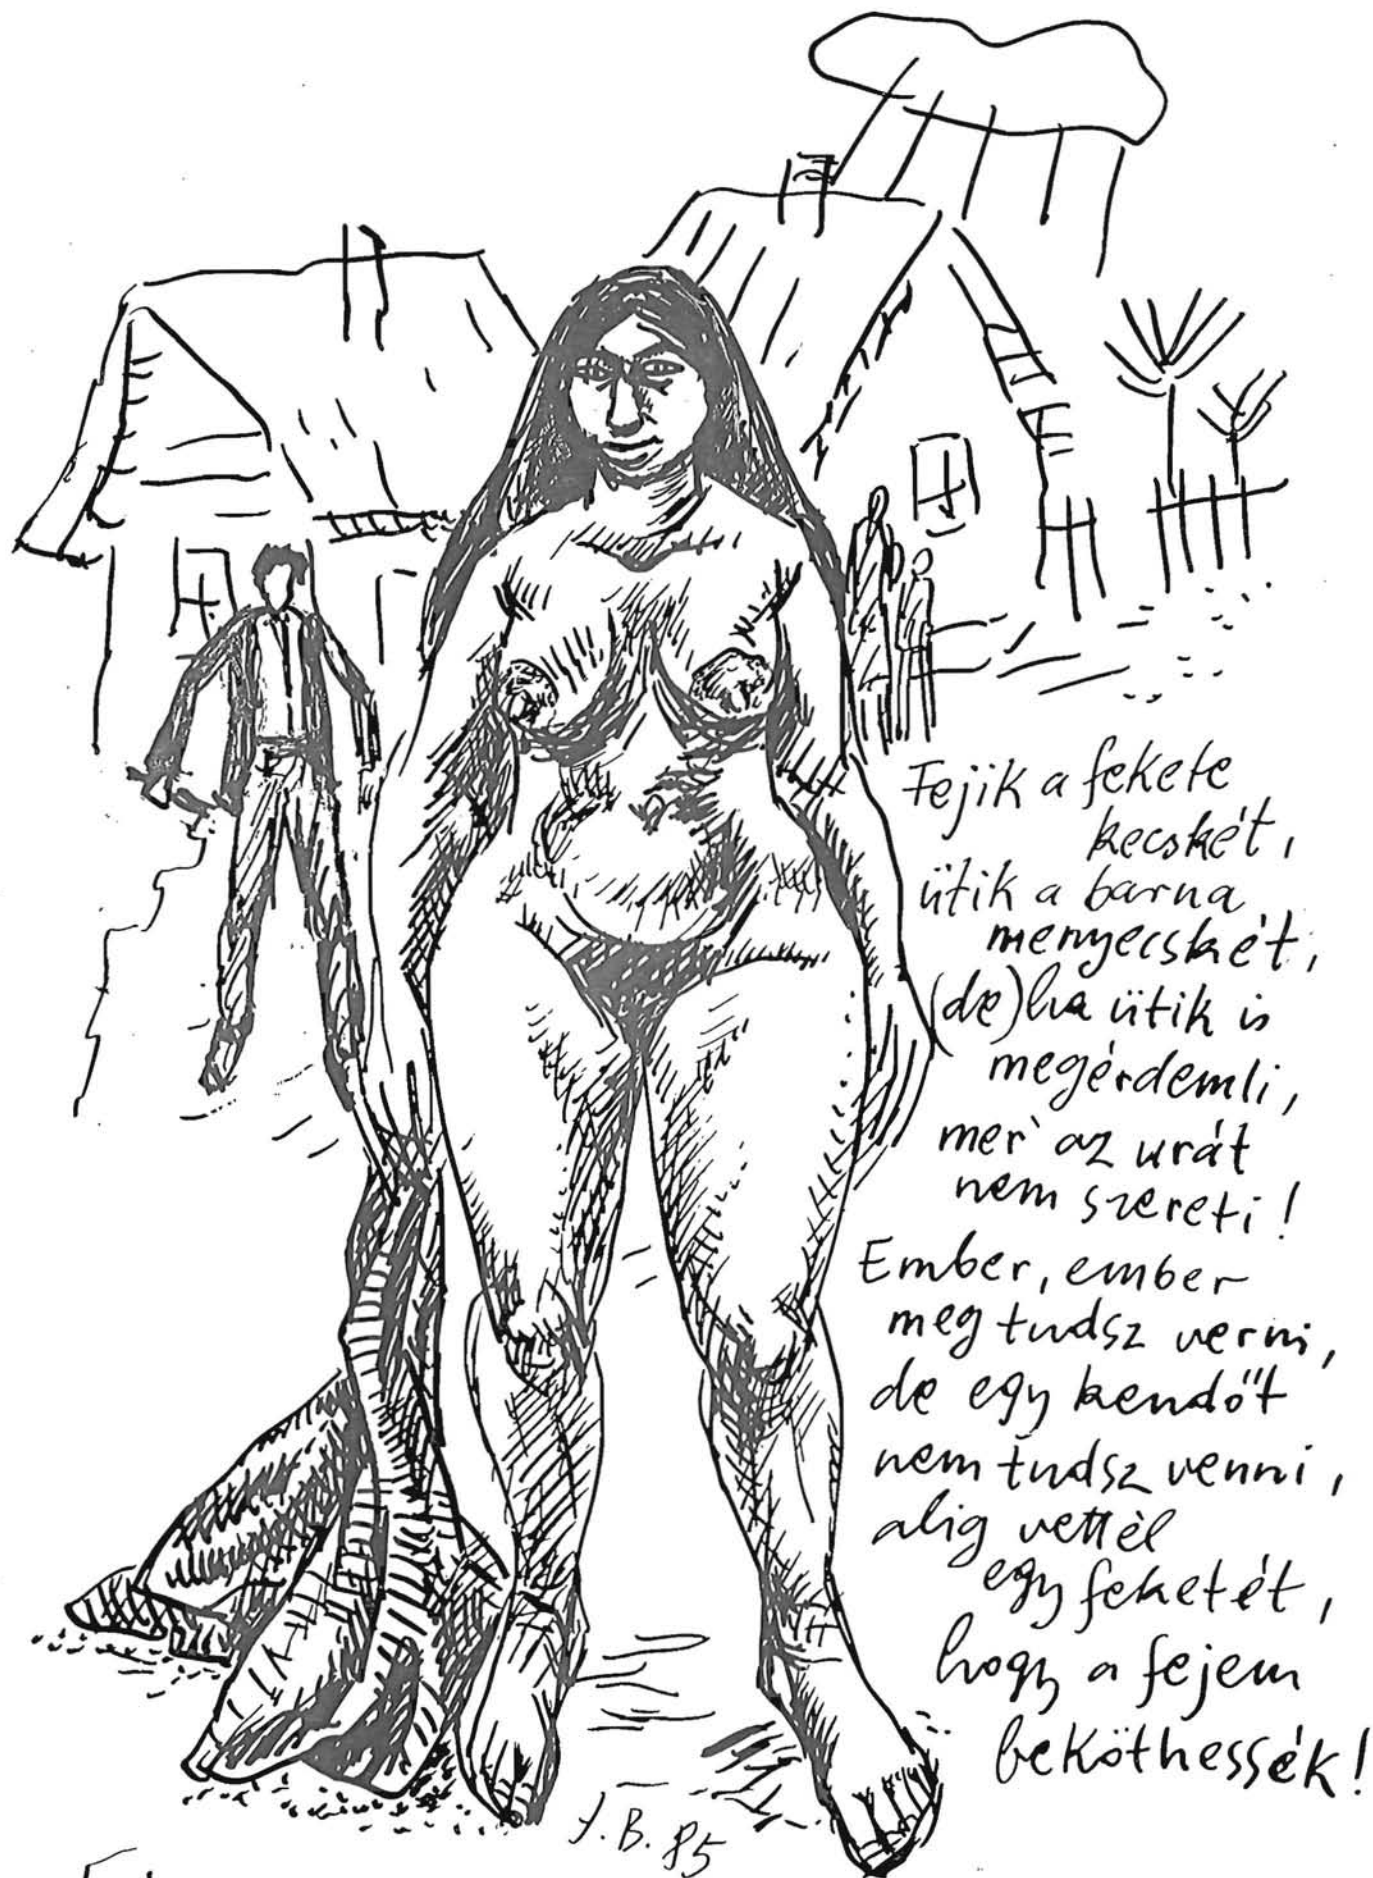 Fejik a fekete
kecskét,
ütik a barna
menyecskét,
(de) ha ütik is
megérdemli,
mer' az urát
nem szereti!
Ember, ember
meg tudsz verni,
de egy kendőt
nem tudsz venni,
alig vettél
egy feketét,
hogy a fejem
beköthessék!
J.B. 85